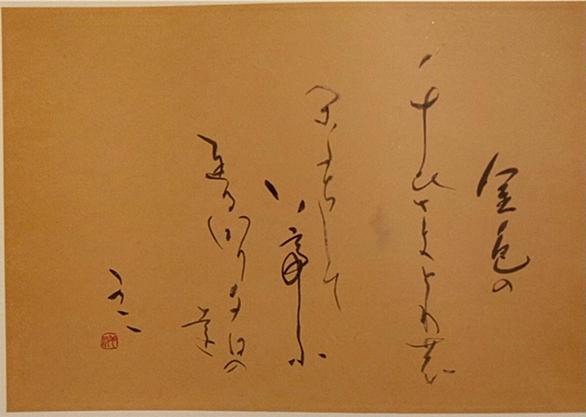 金色の
ちひさきとりの
かたちして
いてふ
ちるなり夕日の